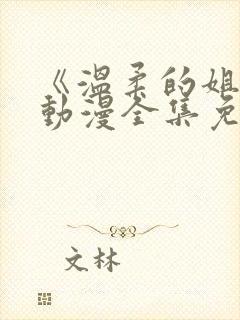 《温柔的姐
动漫全集免
文林